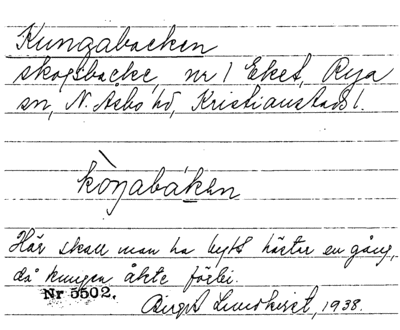 Kungabacken
skogsbacke, nr 1 Eket, Rya
sn, N. Åsbo hd, Kristianstads l.
kòŋabáken
Här skall man ha bytt hästar en gång,
då kungen åkte förbi.
Nr 5502.
Birgit Lundkvist, 1938.